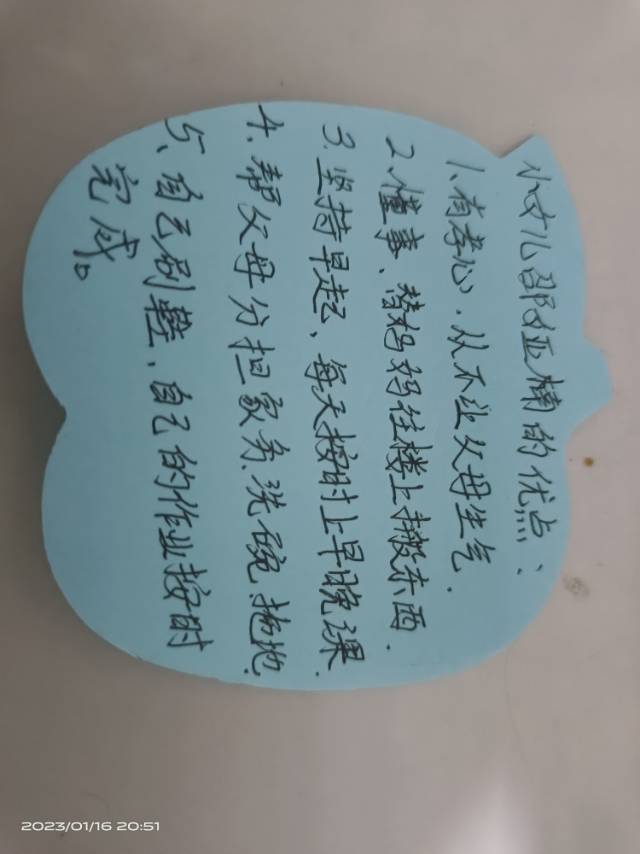 小女儿邵亚楠的优点：
1.有孝心.从不让父母生气.
2.懂事、替妈妈往楼上搬东西.
3.坚持早起、每天按时上早晚课.
4.帮父母分担家务.洗碗.拖地.
5、自己刷鞋、自己的作业按时
完成。
2023/01/16 20:51